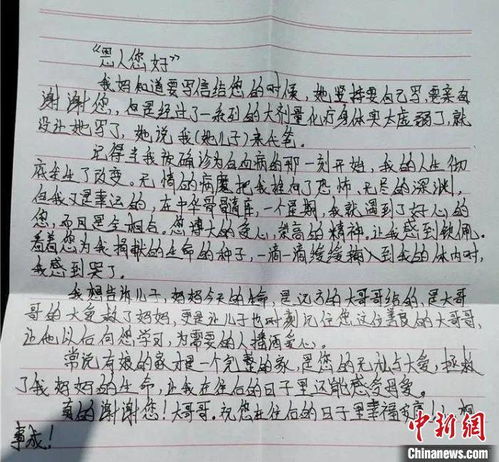 “恩人您好”
我妈知道要写信给您的时候，她坚持要自己写，要亲自
谢谢您，但是经过了一系列的大剂量化疗身体实太虚弱了，就
没让她写了，她说我(她儿子)来代笔。
记得当我被确诊为白血病的那一刻开始，我的人生彻
底发生了改变。无情的病魔把我推向了恐怖、无尽的深渊，
但我又是幸运的，在中华骨髓库，一个星期，我就遇到了好心的
您，而且是全相合。您博大的爱心，崇高的精神，让我感到钦佩。
看着您为我捐献的生命的种子，一滴一滴缓缓输入到我的体内时，
我感到哭了。
我想告诉儿子，妈妈今天的生命，是远方的大哥哥给的，是大哥
哥的大爱救了妈妈，更是让儿子也时刻记住您这位善良的大哥哥，
让他以后向您学习，为需要的人播洒爱心。
常说有娘的家才是一个完整的家，是您的无私与大爱，拯救
了我妈妈的生命，让我在往后的日子里还能感受母爱。
真的谢谢您！大哥哥。祝您在往后的日子里幸福
事成！
中新网
Chinanews.com